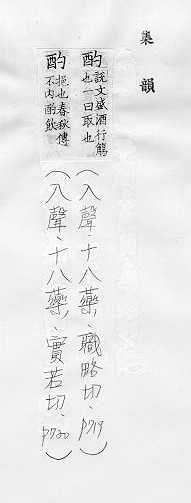 集韻
酌
說文盛酒行觴
也一曰取也
(入聲、十八藥、職略切、p719)
酌
挹也春秋傳
不內酌飲
(入聲、十八藥、實若切、p720)